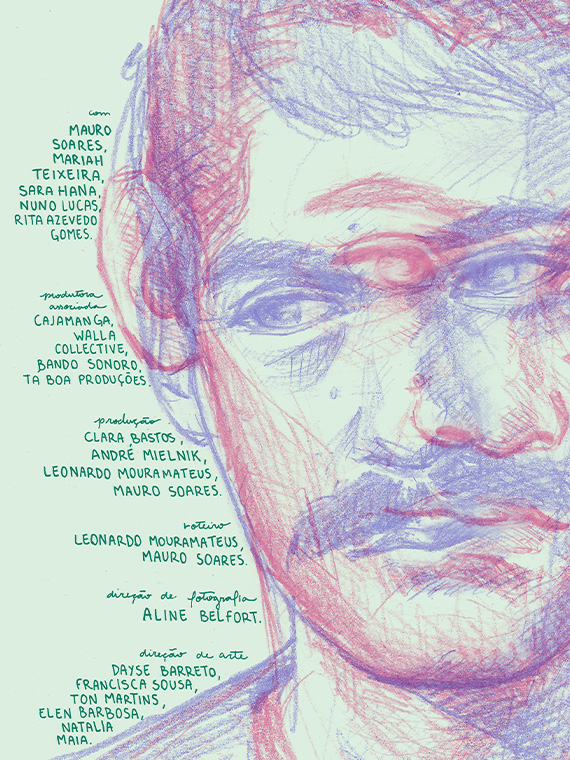 com
MAURO
SOARES,
MARIAH
TEIXEIRA,
SARA HANA,
NUNO LUCAS,
RITA AZEVEDO
GOMES.
produtora
associada
CAJAMANGA,
WALLA
COLLECTIVE,
BANDO SONORO,
TA BOA PRODUÇÕES.
produção
CLARA BASTOS,
ANDRÉ MIELNIK,
LEONARDO MOURAMATEUS,
MAURO SOARES.
roteiro
LEONARDO MOURAMATEUS,
MAURO SOARES.
direção de fotografia
ALINE BELFORT.
direção de arte
DAYSE BARRETO,
FRANCISCA SOUSA,
TON MARTINS,
ELEN BARBOSA,
NATALIA
MAIA.